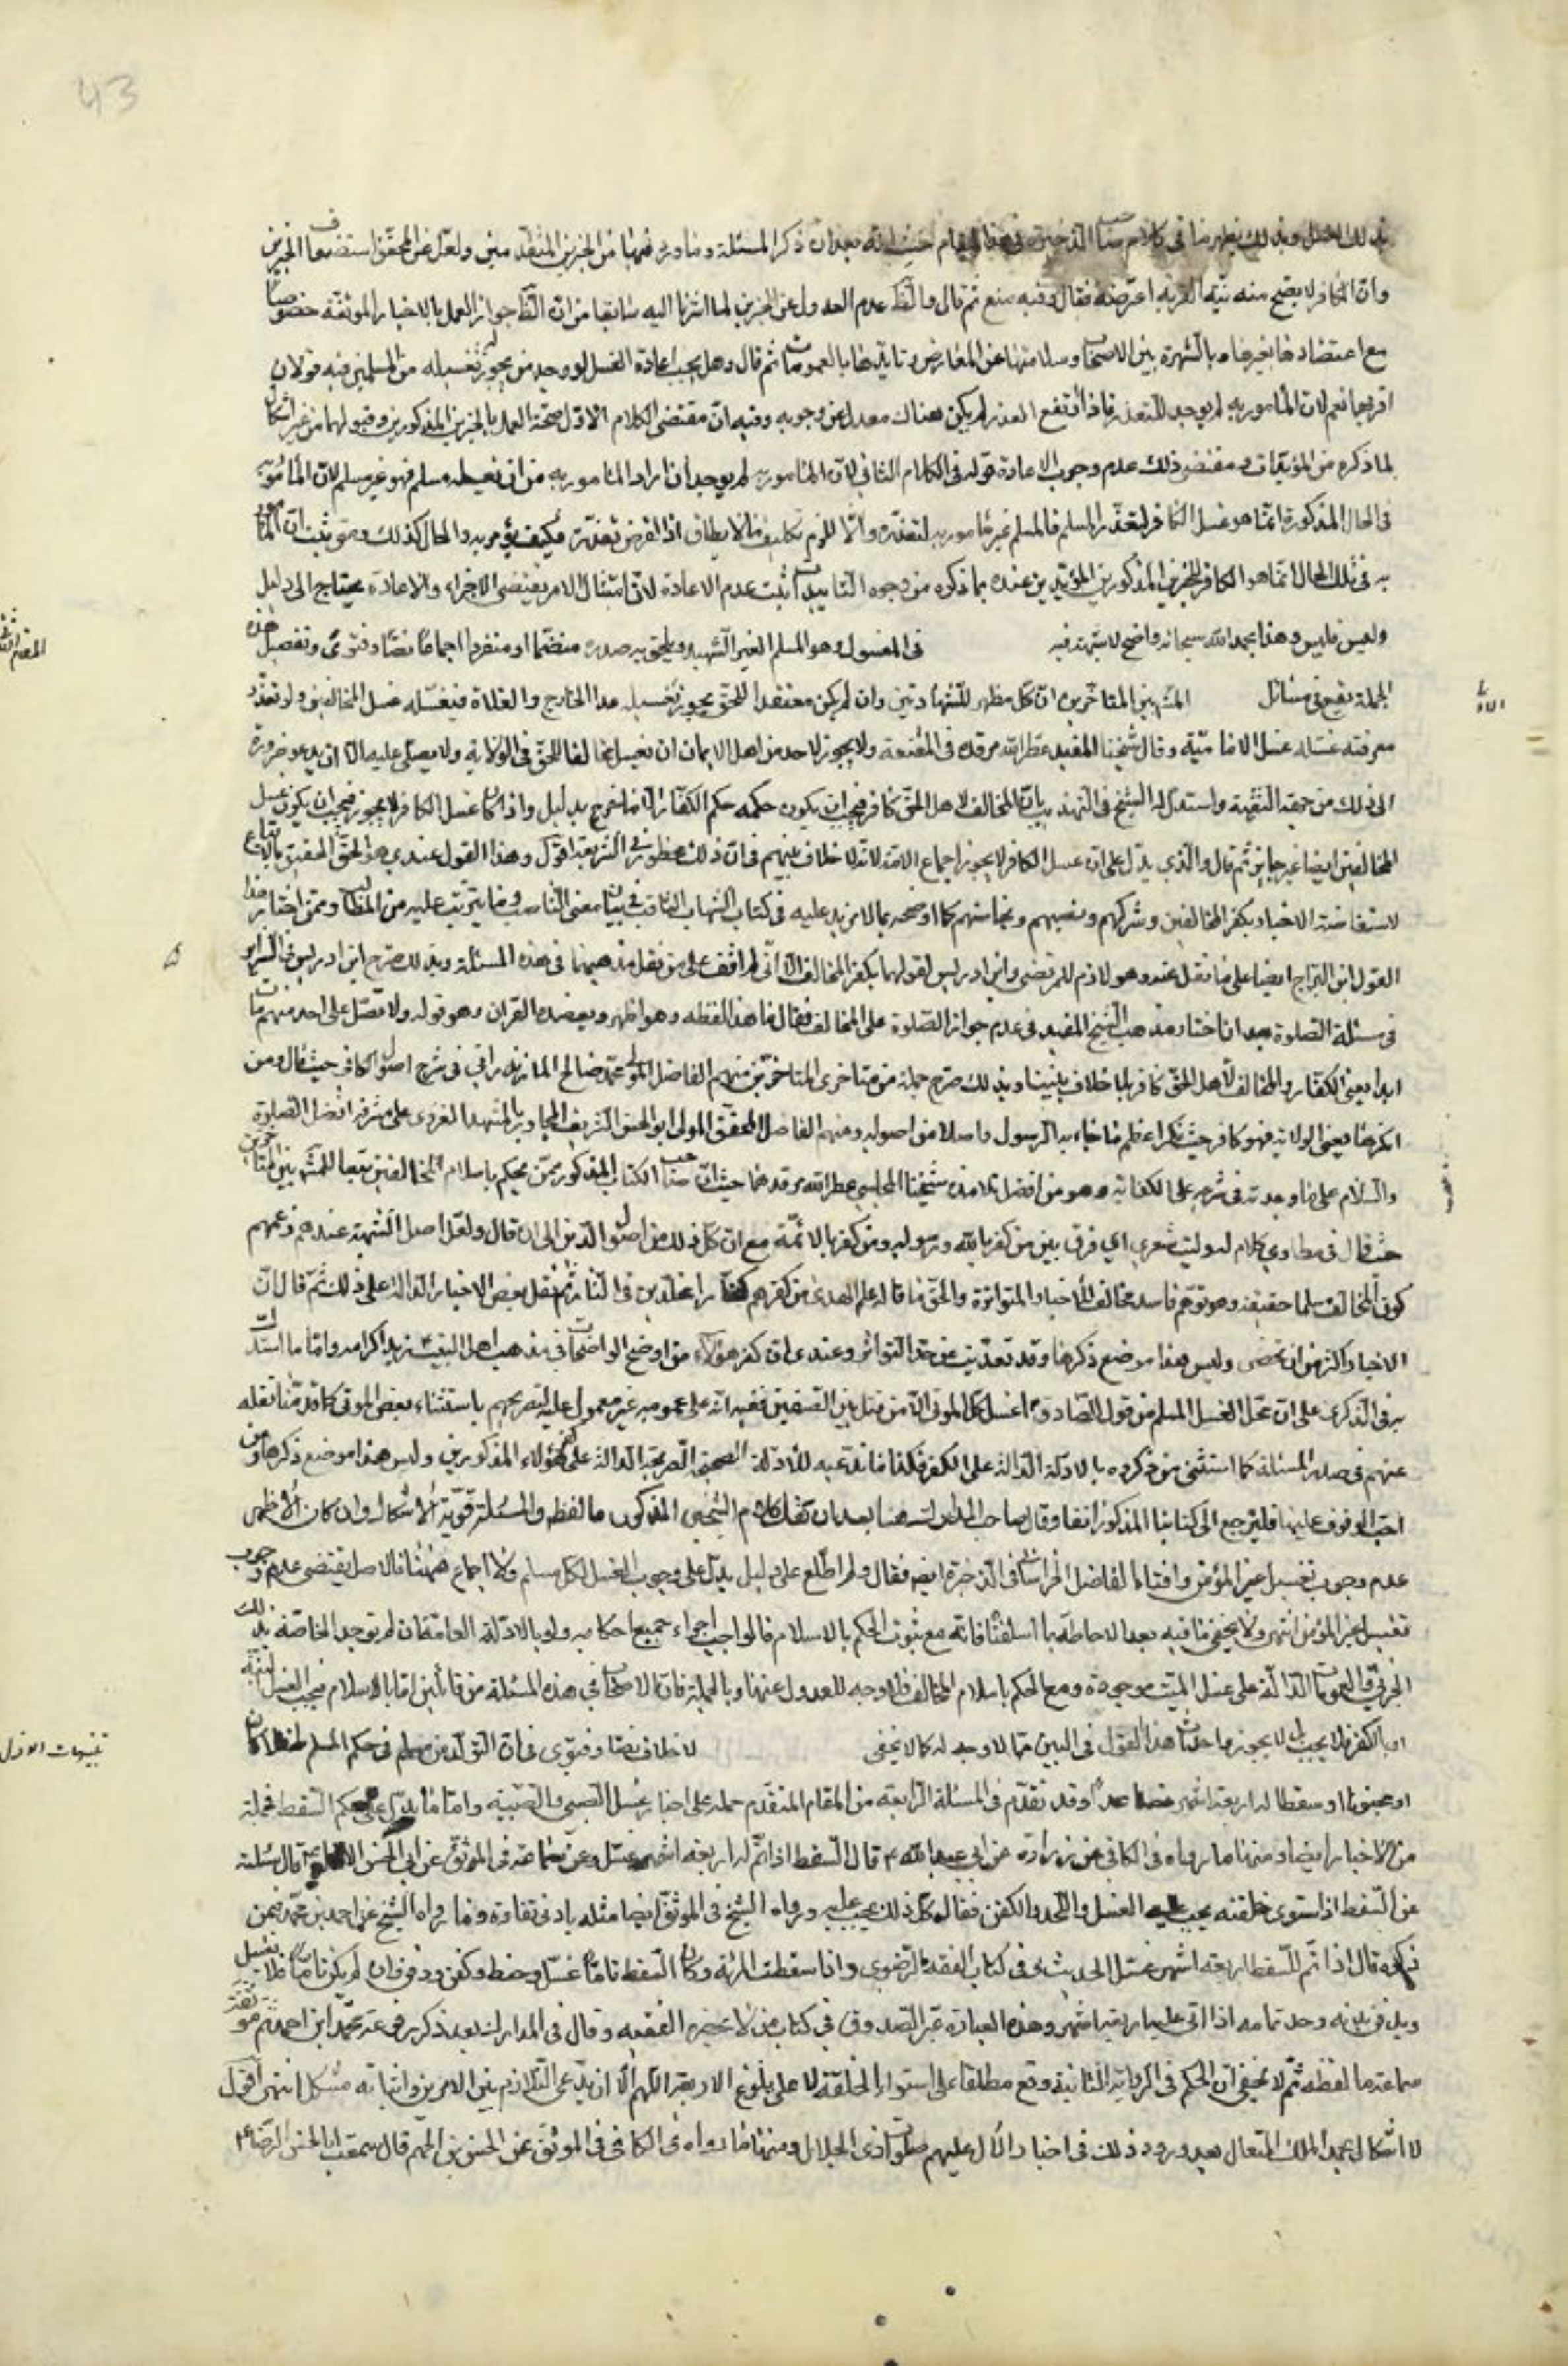 43
بذلك العمل وبذلك يظهر ما في كلام صاحب الذخيرة في هذا المقام حيث انه بعد ان ذكر المسئلة وما ورد فيها من الخبرين المتقدمين ونقل عن المحقق استضعاف الخبرين
وان الكافر لا يصح منه نية القربة اعترضه فقال وفيه منع ثم قال والظ عدم العدول عن الخبرين لما اشرنا اليه سابقا من ان الظ جواز العمل بالاخبار الموثقة خصوصا
مع اعتضادها بغيرها وبالشهرة بين الاصحاب وسلامتها عن المعارض وتأيدها بالعمومات ثم قال وهل يجب اعادة الغسل لو وجد من يجوز تغسيله من المسلمين فيه قولان
اقربهما نعم لان المأمور به لم يوجد للتعذر فاذا ارتفع العذر لم يكن هناك معدل عن وجوبه وفيه ان مقتضى الكلام الاول صحة العمل بالخبرين المذكورين وقبولهما من غير اشكال
لما ذكره من المؤيدات ومقتضى ذلك عدم وجوب الاعادة قوله في الكلام الثاني لان المأمور به لم يوجد ان اراد المأمور به من ان تغسيله مسلم فهو غير مسلم لان المأمور به
في الحال المذكورة انما هو غسل الكافر لتعذر المسلم فالمسلم غير مأمور به لتعذره والا للزم تكليف ما لا يطاق اذ الفرض تعذره فكيف يؤمر به والحال كذلك ومتى ثبت ان المأمور
به في تلك الحال انما هو الكافر للخبرين المذكورين المؤيدين عنده بما ذكره من وجوه التأييدات ثبت عدم الاعادة لان امتثال الامر يقتضي الاجزاء والاعادة يحتاج الى دليل
وليس فليس وهذا بحمد الله سبحانه واضح لا شبهة فيه في المغسول وهو المسلم الغير الشهيد ويلحق به صدره منضما او منفردا اجماعا نصا وفتوى وتفصيل هذه
الجملة يقع في مسائل المش بين المتاخرين ان كل مظهر للشهادتين وان لم يكن معتقدا للحق يجوز تغسيله عدا الخارج والغلاة فيغسله غسل المخالفين ولو تعذر
معرفته غسله غسل الامامية وقال شيخنا المفيد عطر الله مرقده في المقنعة ولا يجوز لاحد من اهل الايمان ان يغسل مخالفا للحق في الولاية ولا يصلي عليه الا ان يدعو ضرورة
الى ذلك من جهة التقية واستدل له الشيخ في التهذيب بان المخالف لاهل الحق كافر فيجب ان يكون حكمه حكم الكفار الا ما خرج بدليل واذا كان غسل الكافر لا يجوز فيجب ان يكون غسل
المخالفين ايضا غير جايز ثم قال والذي يدل على ان غسل الكافر لا يجوز اجماع الامة لانه لا خلاف بينهم في ان ذلك محظور في الشريعة اقول وهذا القول عندي هو الحق الحقيق بالاتباع
لاستفاضة الاخبار بكفر المخالفين وشركهم ونصبهم ونجاستهم كما اوضحه بما لا مزيد عليه في كتاب الشهاب الثاقب في بيان معنى الناصب وما يترتب عليه من المطالب وممن اختار هذا
القول ابن البراج ايضا على ما نقل عنه وهو لازم للمرتضى وابن ادريس لقولهما بكفر المخالف الا اني لم اقف على من نقل مذهبهما في هذه المسئلة وبذلك صرح ابن ادريس في السرائر
في مسئلة الصلوة بعد ان اختار مذهب الشيخ المفيد في عدم جواز الصلوة على المخالف فقال ما هذا لفظه وهو اظهر ويعضده القران وهو قوله ولا تصل على احد منهم مات
ابدا يعني الكفار والمخالف لاهل الحق كافر بلا خلاف بيننا وبذلك صرح جملة من متاخري المتاخرين منهم الفاضل المولى محمد صالح المازندراني في شرح اصول الكافي حيث قال ومن
انكرها يعني الولاية فهو كافر حيث انكر اعظم ما جاء به الرسول واصلا من اصوله ومنهم الفاضل المحقق المولى ابو الحسن الشريف المجاور بالمشهد الغروي على مشرفه افضل الصلوة
والسلام على ما وجدته في شرحه على الكفاية وهو من افضل تلامذة شيخنا المجلسي عطر الله مرقدهما حيث ان صاحب الكتاب المذكور ممن يحكم باسلام المخالفين تبعا للمش بين المتاخرين
حيث قال في مطاوي كلام له وليت شعري اي فرق بين من كفر بالله ورسوله ومن كفر بالائمة مع ان كل ذلك من اصول الدين الى ان قال ولعل اصل الشبهة عندهم زعمهم
كون المخالف مسلما حقيقة وهو توهم فاسد مخالف للاخبار المتواترة والحق ما قاله علم الهدى من كفرهم كفارا مخلدين في النار ثم نقل بعض الاخبار الدالة على ذلك ثم قال ان
الاخبار اكثر من ان تحصى وليس هذا موضع ذكرها وقد تعدت عن حد التواتر وعندي ان كفر هؤلاء من اوضح الواضحات في مذهب اهل البيت زيد اكرامه واما ما استدل
به في الذكرى على ان محل الغسل المسلم من قول الصادق ع اغسل كل الموتى الا من قتل بين الصفين ففيه انه على عمومه غير معمول عليه لتصريحهم باستثناء بعض الموتى كما قدمنا نقله
عنهم في صدر المسئلة كما استثنى من ذكروه بالادلة الدالة على الكفر فكذا ما ندعيه للادلة الصحيحة الصريحة الدالة على كفر هؤلاء المذكورين وليس هذا موضع ذكرها ومن
احب الوقوف عليها فليرجع الى كتابنا المذكور انفا وقال صاحب المدارك هنا بعد ان نقل كلام الشيخين المذكور ما لفظه والمسئلة قوية الاشكال وان كان الاظهر
عدم وجوب تغسيل غير المؤمن واقتفاه الفاضل الخراساني في الذخيرة ايضا فقال ولم اطلع على دليل يدل على وجوب الغسل لكل مسلم ولا اجماع ههنا فالاصل يقتضي عدم وجوب
تغسيل غير المؤمن انتهى ولا يخفى ما فيه بعد الاحاطة بما اسلفنا فانه مع ثبوت الحكم بالاسلام فالواجب اجراء جميع احكامه ولو بالادلة العامة ان لم توجد الخاصة بذلك
الجزئي والعمومات الدالة على غسل الميت موجودة ومع الحكم باسلام المخالف فلا وجه للعدول عنها وبالجملة فان الاصحاب في هذه المسئلة من قائلين اما بالاسلام فيجب الغسل لقيته
او بالكفر فلا يجب بل لا يجوز فاحداث هذا القول في البين مما لا وجه له كما لا يخفى لا خلاف نصا وفتوى في ان المتولد من مسلم في حكم المسلم طفلا كان
او مجنونا او سقطا له اربعة اشهر فصاعدا وقد تقدم في المسئلة الرابعة من المقام المتقدم جملة على اخبار غسل الصبي والصبية واما ما يدل على حكم السقط فجملة
من الاخبار ايضا ومنها ما رواه في الكافي عن زرارة عن ابي عبد الله ع قال السقط اذا تم له اربعة اشهر غسل وعن سماعة في الموثق عن ابي الحسن الاول ع قال سئلته
عن السقط اذا استوى خلقته يجب عليه الغسل واللحد والكفن فقال كل ذلك يجب عليه ورواه الشيخ في الموثق ايضا مثله بادنى تفاوت وما رواه الشيخ عن احمد بن محمد عمن
ذكره قال اذا تم للسقط اربعة اشهر غسل الحديث وفي كتاب الفقه الرضوي واذا سقطت المرئة وكان السقط تاما غسل وحنط وكفن ودفن وان لم يكن تاما فلا يغسل
ويدفن بدمه وحد تمامه اذا اتى عليه اربعة اشهر وهذه العبارة عبر الصدوق في كتاب من لا يحضره الفقيه وقال في المدارك بعد ذكر مرفوعة محمد ابن احمد ثم موثقة
سماعة ما لفظه ثم لا يخفى ان الحكم في الرواية الثانية وقع مطلقا على استواء الخلقة لا على بلوغ الاربعة اللهم الا ان يدعى التلازم بين الامرين واثباته مشكل انتهى اقول
لا اشكال بحمد الملك المتعال بعد ورود ذلك في اخبار الآل عليهم صلوات ذي الجلال ومنها ما رواه في الكافي في الموثق عن الحسن بن الجهم قال سمعت ابا الحسن الرضا ع
تنبيهات الاول